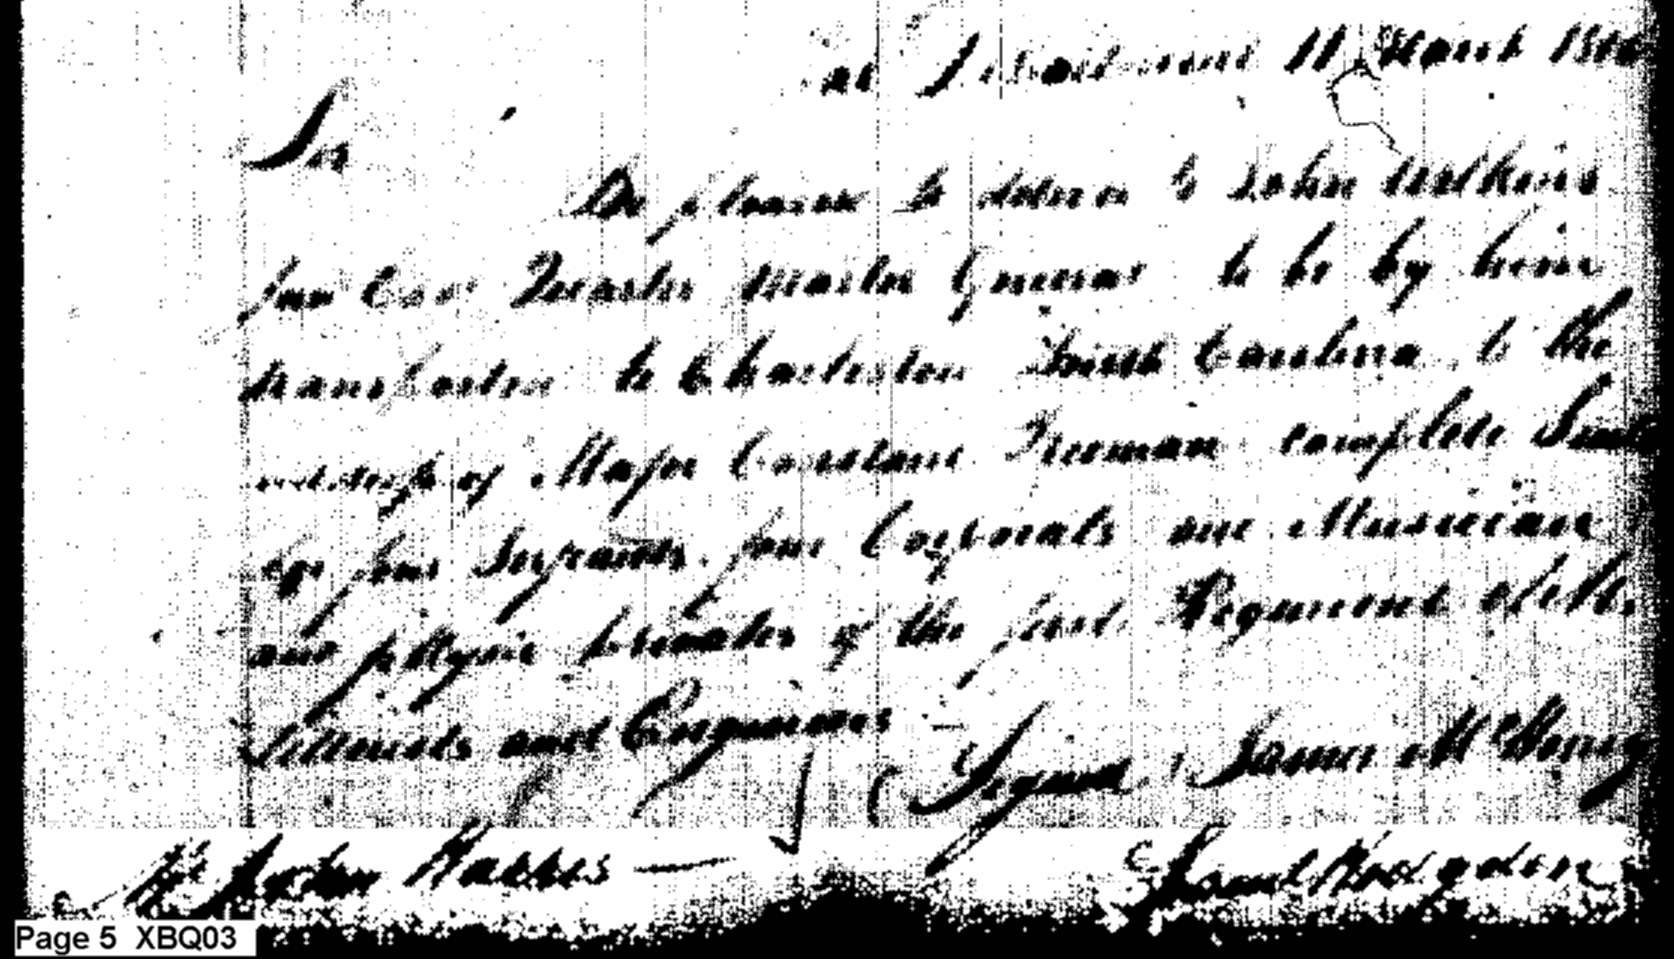 War Department 11 March 1800
Sir
Be pleased to deliver to John Wilkins
Junr Esqr Quarter Master General to be by him
transported to Charleston South Carolina to the
of Major Constant Freeman complete
for four Serjeants four Corporals one Musician
and fifty six privates of the first Regiment of
Artillerists and Engineers
(Signed) James McHenry
Mr John Harris
Saml Hodgdon
Page 5 XBQ03